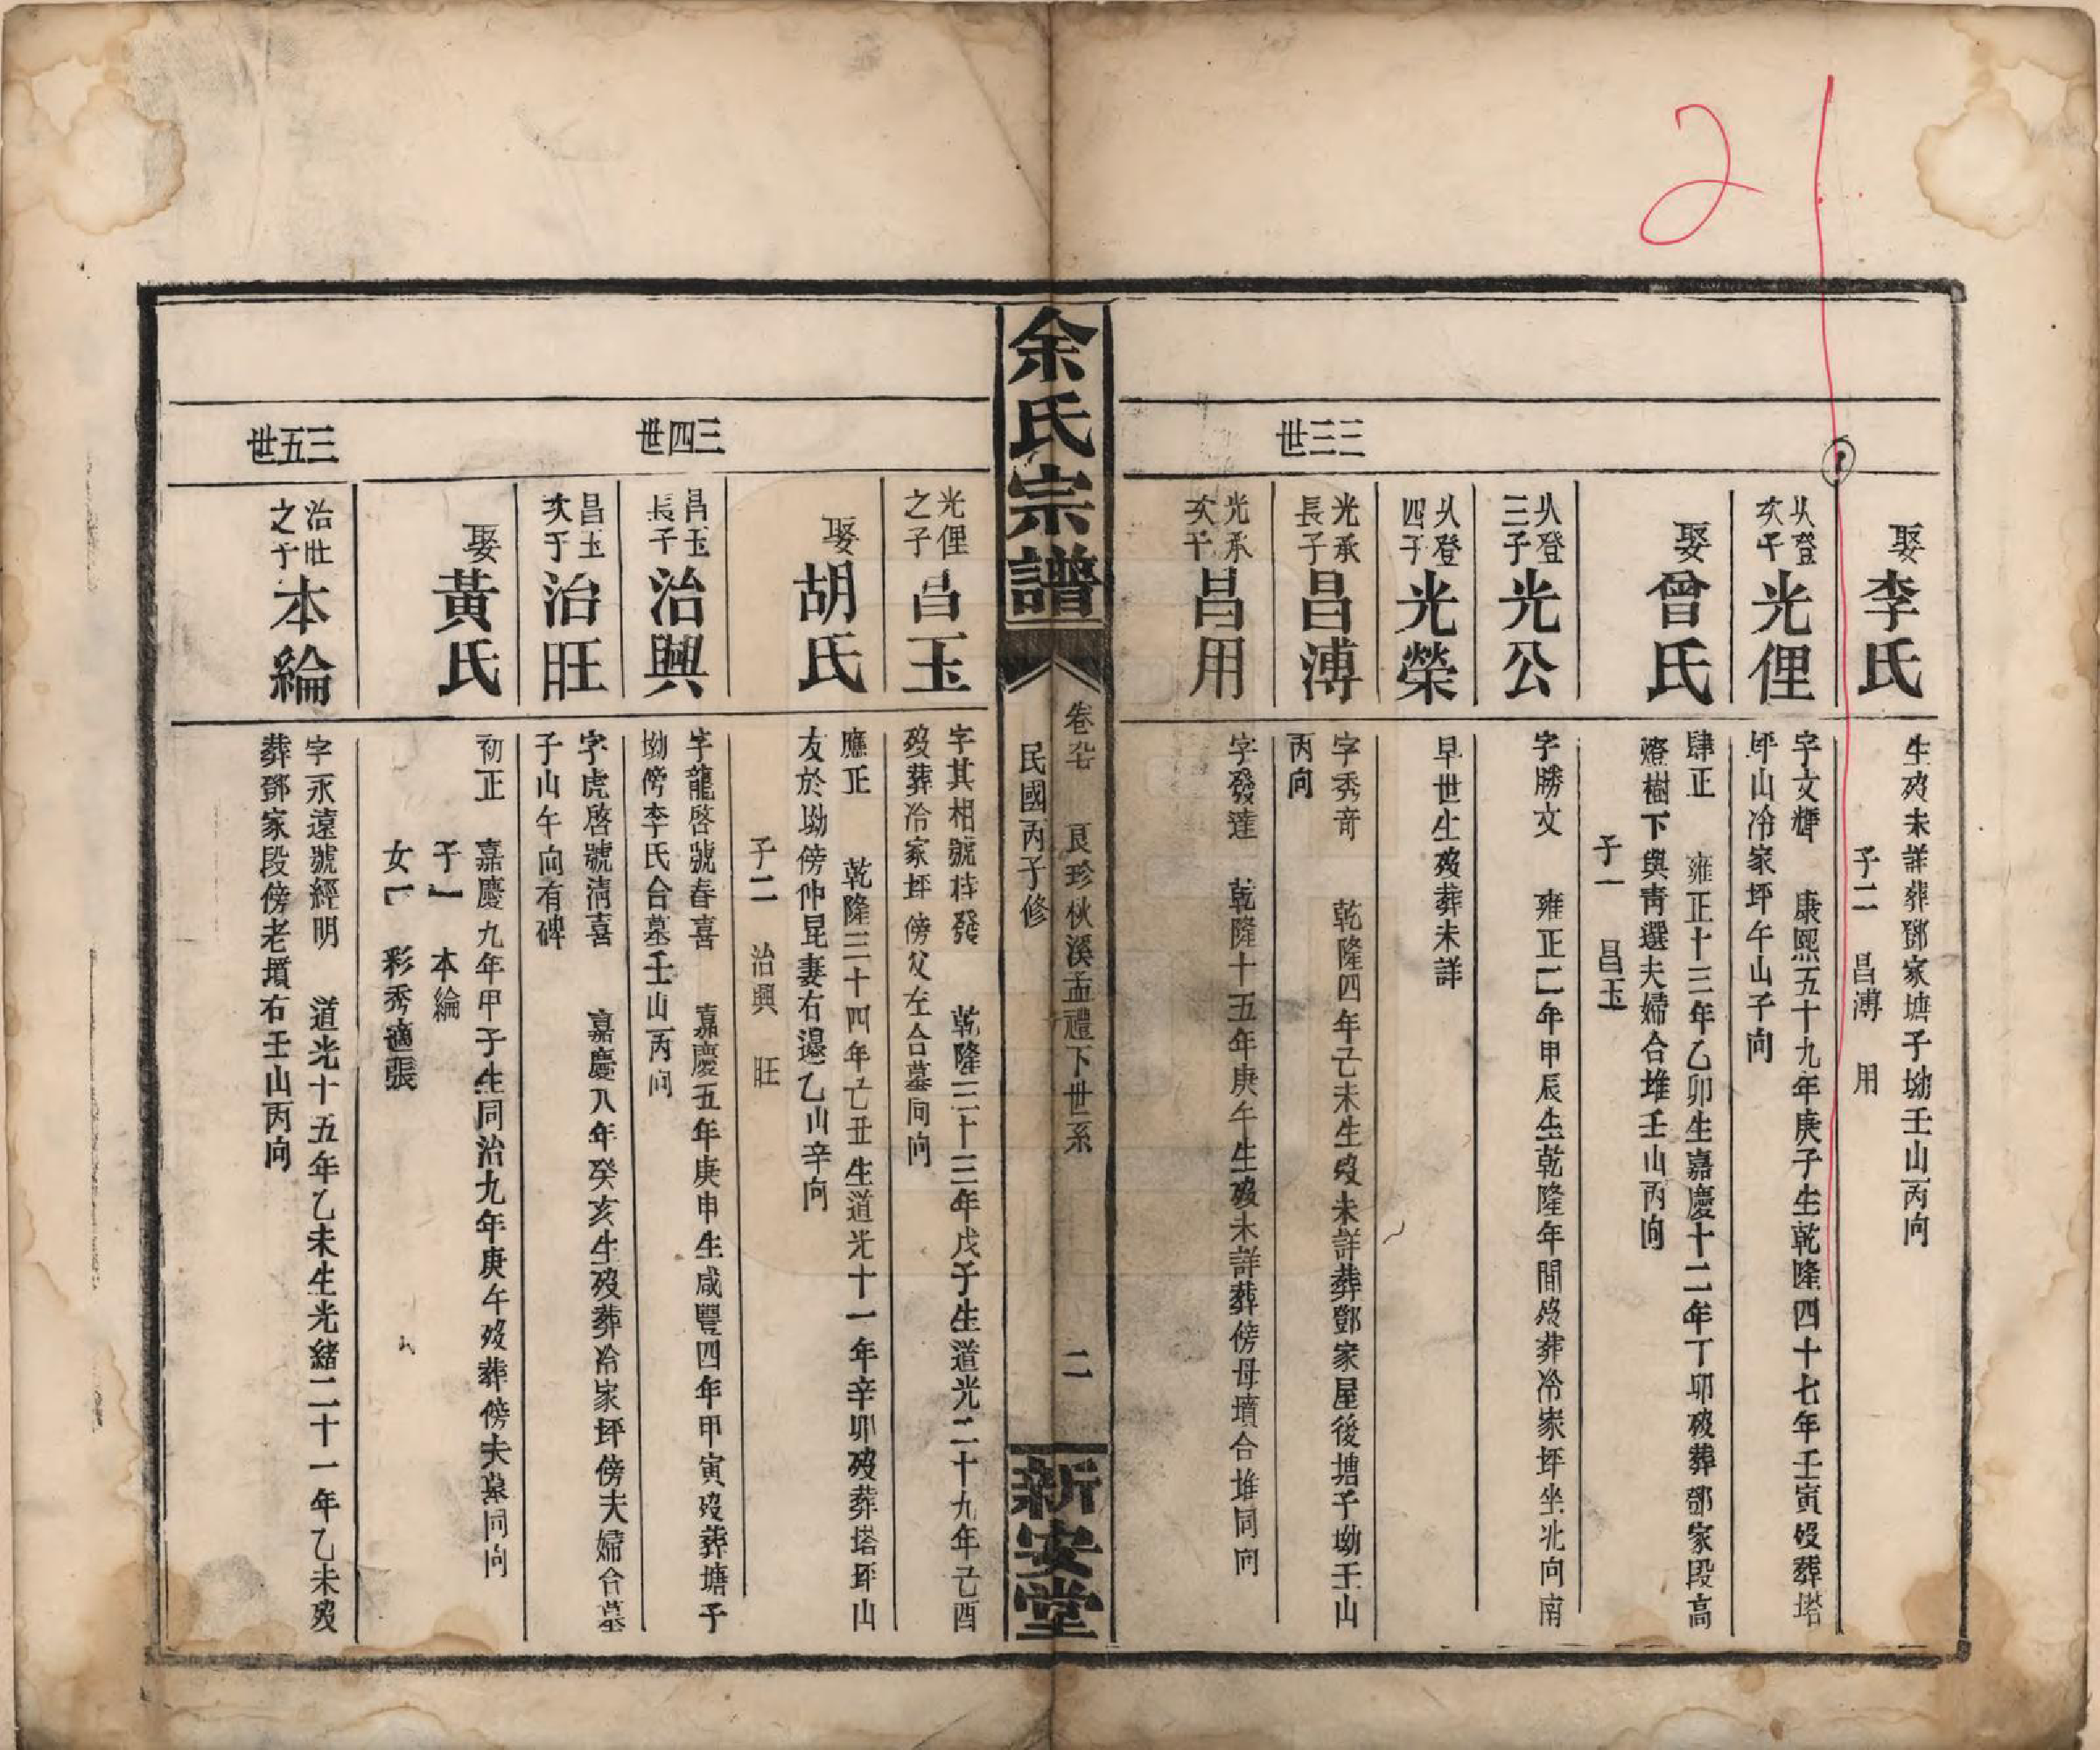 21
三三世
娶李氏
生歿未詳葬鄧家塘子坳壬山丙向
子二 昌溥 用
从登次子光俚
字文輝 康熙五十九年庚子生乾隆四十七年壬寅歿葬塔
坪山冷家坪午山子向
娶曾氏
肆正 雍正十三年乙卯生嘉慶十二年丁卯歿葬鄧家段高
燈樹下與靑選夫婦合堆壬山丙向
子一 昌玉
从登三子光公
字勝文 雍正二年甲辰生乾隆年間歿葬冷家坪坐北向南
从登四子光榮
早世生歿葬未詳
光承長子昌溥
字秀奇 乾隆四年己未生歿未詳葬鄧家屋後塘子坳壬山
丙向
光承次子昌用
字發達 乾隆十五年庚午生歿未詳葬傍母墳合堆同向
余氏宗譜
卷 良珍秋溪孟禮下世系 二
民國丙子修
新安堂
三四世
光俚之子昌玉
字其相號梓發 乾隆三十三年戊子生道光二十九年己酉
歿葬冷家坪傍父左合墓同向
娶胡氏
應正 乾隆三十四年己丑生道光十一年辛卯歿葬塔坪山
友於坳傍仲昆妻右邊乙山辛向
子二 治興 旺
昌玉長子治興
字龍啓號春喜 嘉慶五年庚申生咸豐四年甲寅歿葬塘子
坳傍李氏合墓壬山丙向
昌玉次子治旺
字虎啓號淸喜 嘉慶八年癸亥生歿葬冷家坪傍夫婦合墓
子山午向有碑
娶黃氏
初正 嘉慶九年甲子生同治九年庚午歿葬傍夫墓同向
子一 本綸
女一 彩秀適張
三五世
治旺之子本綸
字永遠號經明 道光十五年乙未生光緒二十一年乙未歿
葬鄧家段傍老墳右壬山丙向